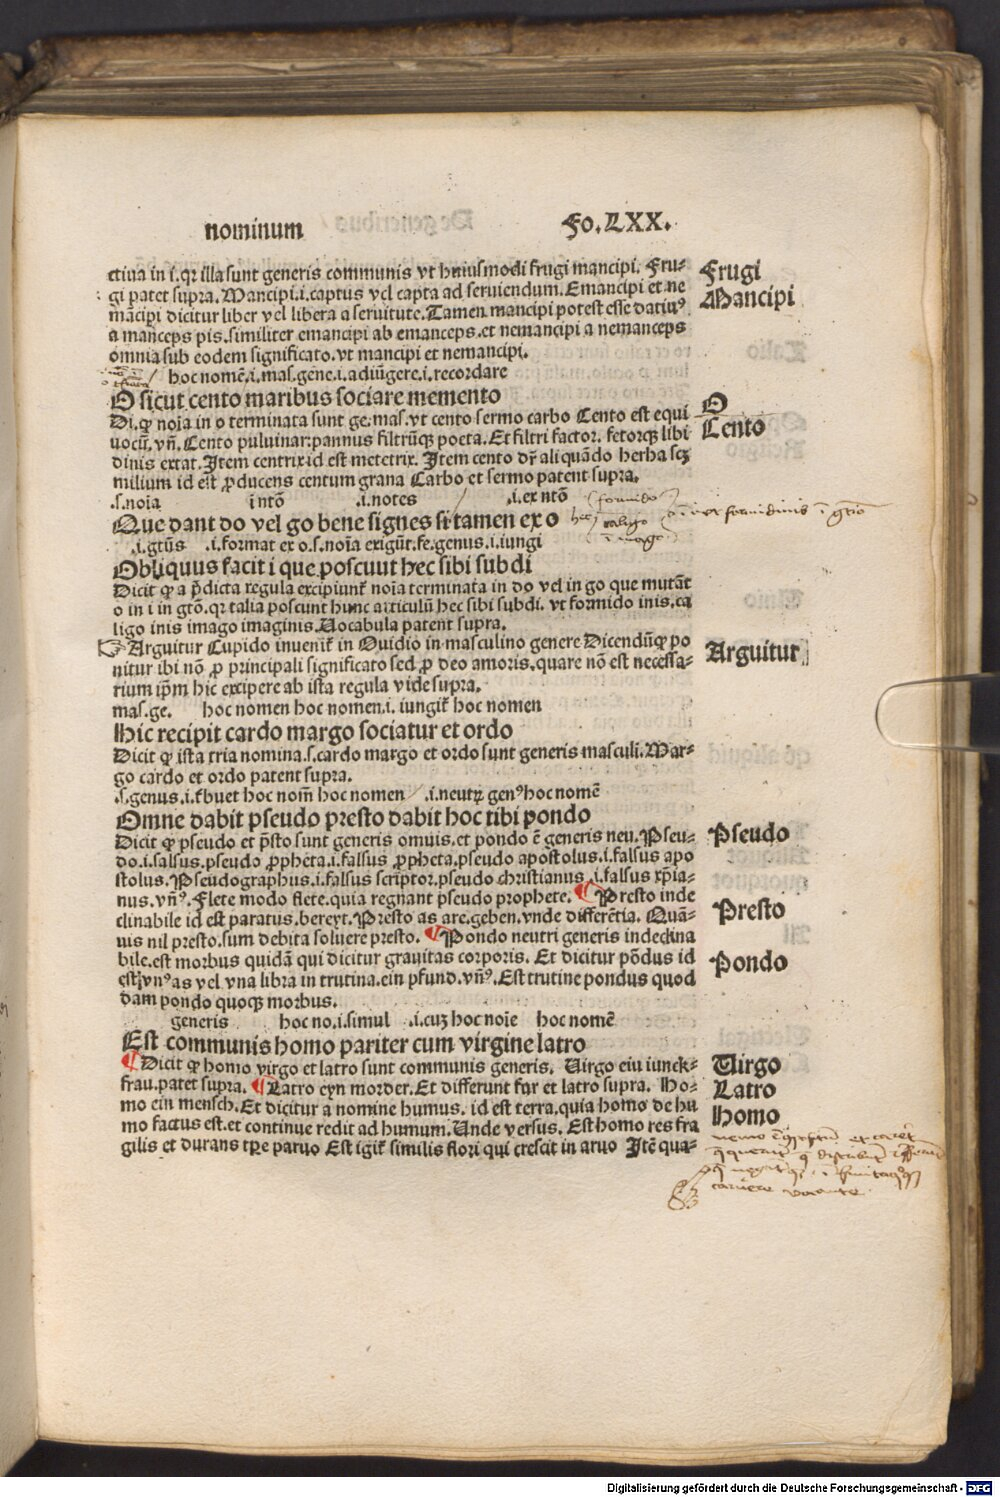 nominum
Fo. LXX.
ctiua in i. qꝛ illa sunt generis communis vt huiusmodi frugi mancipi. Fru-
gi patet supra. Mancipi .i. captus vel capta ad seruiendum. Emancipi et ne
mācipi dicitur liber vel libera a seruitute. Tamen mancipi potest esse datiuꝰ
a manceps pis. similiter emancipi ab emanceps. et nemancipi a nemanceps
omnia sub eodem significato. vt mancipi et nemancipi.
Frugi
Mancipi
hoc nomē .i. mas. gene .i. adiūgere .i. recordare
O sicut cento maribus sociare memento
Di. ꝙ noīa in o terminata sunt ge. mas. vt cento sermo carbo Cento est equi
uocū. vñ. Cento puluinar: pannus filtrūqꝫ poeta. Et filtri factor. fetorqꝫ libi
dinis extat. Item centrix id est metetrix. Item cento dꝛ̄ aliquādo herba scꝫ
milium id est ꝓducens centum grana Carbo et sermo patent supra.
O
Cento
.s. noīa i ntō .i. notes .i. ex ntō
Que dant do vel go bene signes si tamen ex o
formido
hec caligo
imago
.i. gtūs .i. format ex o .s. noīa exigūt. fe. genus .i. iungi
Obliquus facit i que poscuut hec sibi subdi
Dicit ꝙ a p̄dicta regula excipiunt᷑ noīa terminata in do vel in go que mutāt
o in i in gtō. qꝛ talia poscunt hunc articulū hec sibi subdi. vt formido inis. ca
ligo inis imago imaginis. Uocabula patent supra.
Arguitur Cupido inuenit᷑ in Ouidio in masculino genere Dicendūqꝫ po
nitur ibi nō ꝓ principali significato sed ꝓ deo amoris. quare nō est necessa-
rium ip̄m hic excipere ab ista regula vide supra.
Arguitur
mas. ge. hoc nomen hoc nomen .i. iungit᷑ hoc nomen
Hic recipit cardo margo sociatur et ordo
Dicit ꝙ ista tria nomina .s. cardo margo et ordo sunt generis masculi. Mar-
go cardo et ordo patent supra.
.s. genus .i. t᷑buet hoc nom̄ hoc nomen .i. neutꝝ genꝰ hoc nomē
Omne dabit pseudo presto dabit hoc tibi pondo
Dicit ꝙ pseudo et p̄sto sunt generis omuis. et pondo ē generis neu. Pseu-
do .i. falsus. pseudo ꝓpheta .i. falsus ꝓpheta. pseudo apostolus .i. falsus apo
stolus. Pseudographus .i. falsus scriptor. pseudo christianus .i. falsus xp̄ia-
nus. vñꝰ. Flete modo flete. quia regnant pseudo prophete. ¶ Presto inde
clinabile id est paratus. bereyt. Presto as are. geben. vnde differētia. Quā-
uis nil presto. sum debita soluere presto. ¶ Pondo neutri generis indeclina
bile. est morbus quidā qui dicitur grauitas corporis. Et dicitur pōdus id
est vnꝰ as vel vna libra in trutina. ein pfund. vñꝰ. Est trutine pondus quod
dam pondo quoqꝫ morbus.
Pseudo
Presto
Pondo
generis hoc no. .i. simul .i. cuꝫ hoc noīe hoc nomē
Est communis homo pariter cum virgine latro
¶ Dicit ꝙ homo virgo et latro sunt communis generis. Uirgo eiu iunck-
frau. patet supra. ¶ Latro eyn morder. Et differunt fur et latro supra. Ho-
mo ein mensch. Et dicitur a nomine humus. id est terra. quia homo de hu
mo factus est. et continue redit ad humum. Unde versus. Est homo res fra
gilis et durans tꝑe paruo Est igit᷑ similis flori qui crescit in aruo Itē qua-
Uirgo
Latro
Homo